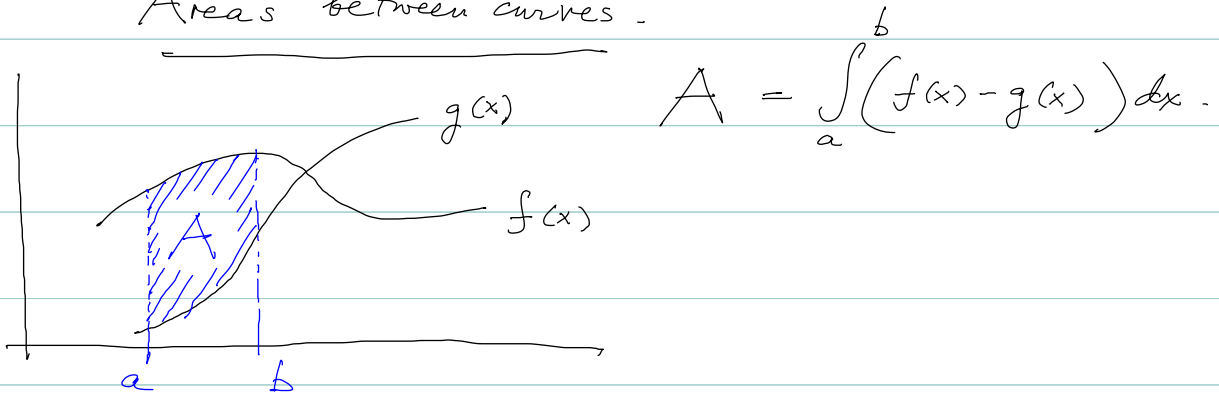 Areas between curves.
A = ∫_a^b (f(x) - g(x)) dx.
g(x)
f(x)
A
a b